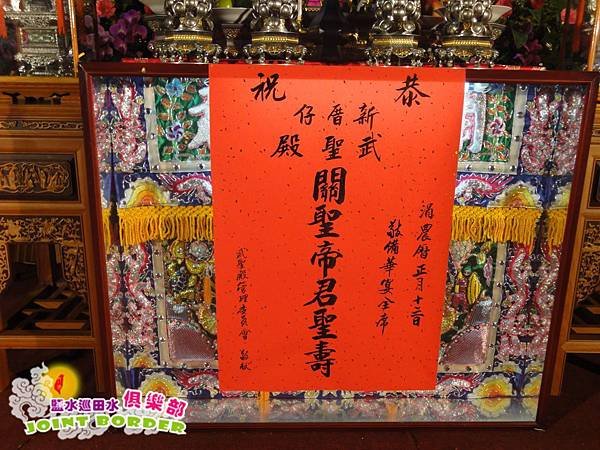 恭祝
新厝仔
武聖殿
關聖帝君聖壽
涓農曆正月十三日
敬備華宴全席
武聖殿管理委員會 敬獻
鹽水巡田水俱樂部
JOINT BORDER